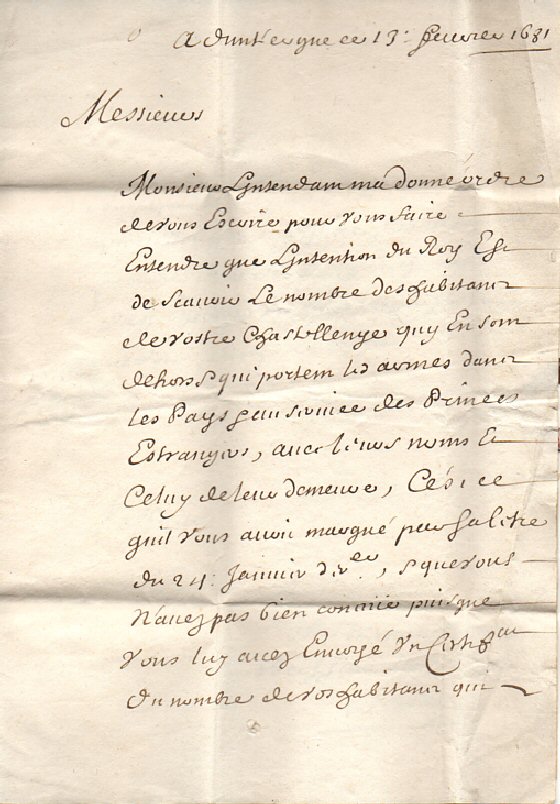 A dunkerque ce 13e feuvrier 1681
Messieurs
Monsieur Lintendam ma donné ordre
de vous Escrire pour vous faire
Entendre que Lintention du Roy Est
de Scauoir Le nombre des habitans
de vostre Chastellenye quy En som
dehors qui portem les armes dans
les Pays seruice des Princes
Estrangers, auec leurs noms Et
Celuy de leur demeure, Cést ce
quil vous auoit marqué par sa letre
du 24: Januier der, que vous
N'auez pas bien puisque
vous luy auez Enuoyé Vn Certificat
du nombre de vos habitans qui